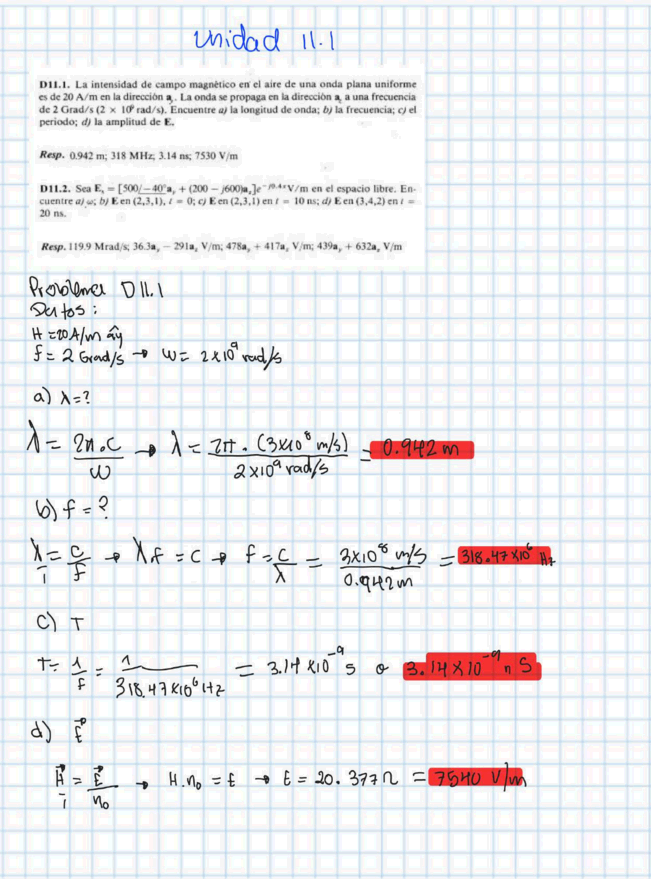 Unidad 11.1
D11.1. La intensidad de campo magnético en el aire de una onda plana uniforme
es de 20 A/m en la dirección a_y. La onda se propaga en la dirección a_z a una frecuencia
de 2 Grad/s (2 × 10⁹ rad/s). Encuentre a) la longitud de onda; b) la frecuencia; c) el
periodo; d) la amplitud de E.
Resp. 0.942 m; 318 MHz; 3.14 ns; 7530 V/m
D11.2. Sea E_s = [500/−40°a_y + (200 − j600)a_z]e^−j0.4x V/m en el espacio libre. En-
cuentre a) ω; b) E en (2,3,1), t = 0; c) E en (2,3,1) en t = 10 ns; d) E en (3,4,2) en t =
20 ns.
Resp. 119.9 Mrad/s; 36.3a_y − 291a_z V/m; 478a_y + 417a_z V/m; 439a_y + 632a_z V/m
Problema D11.1
Datos:
H = 20 A/m ây
f = 2 Grad/s → ω = 2x10⁹ rad/s
a) λ = ?
λ = 2π.c/ω → λ = 2π . (3x10⁸ m/s)/2x10⁹ rad/s = 0.942 m
b) f = ?
λ/1 = c/f → λf = c → f = c/λ = 3x10⁸ m/s/0.942 m = 318.47x10⁶ Hz
c) T
T = 1/f = 1/318.47x10⁶ Hz = 3.14 x10⁻⁹ s o 3.14x10⁻⁹ nS
d) E⃗
H⃗/1 = E⃗/n₀ → H.n₀ = E → E = 20.377Ω = 7540 V/m